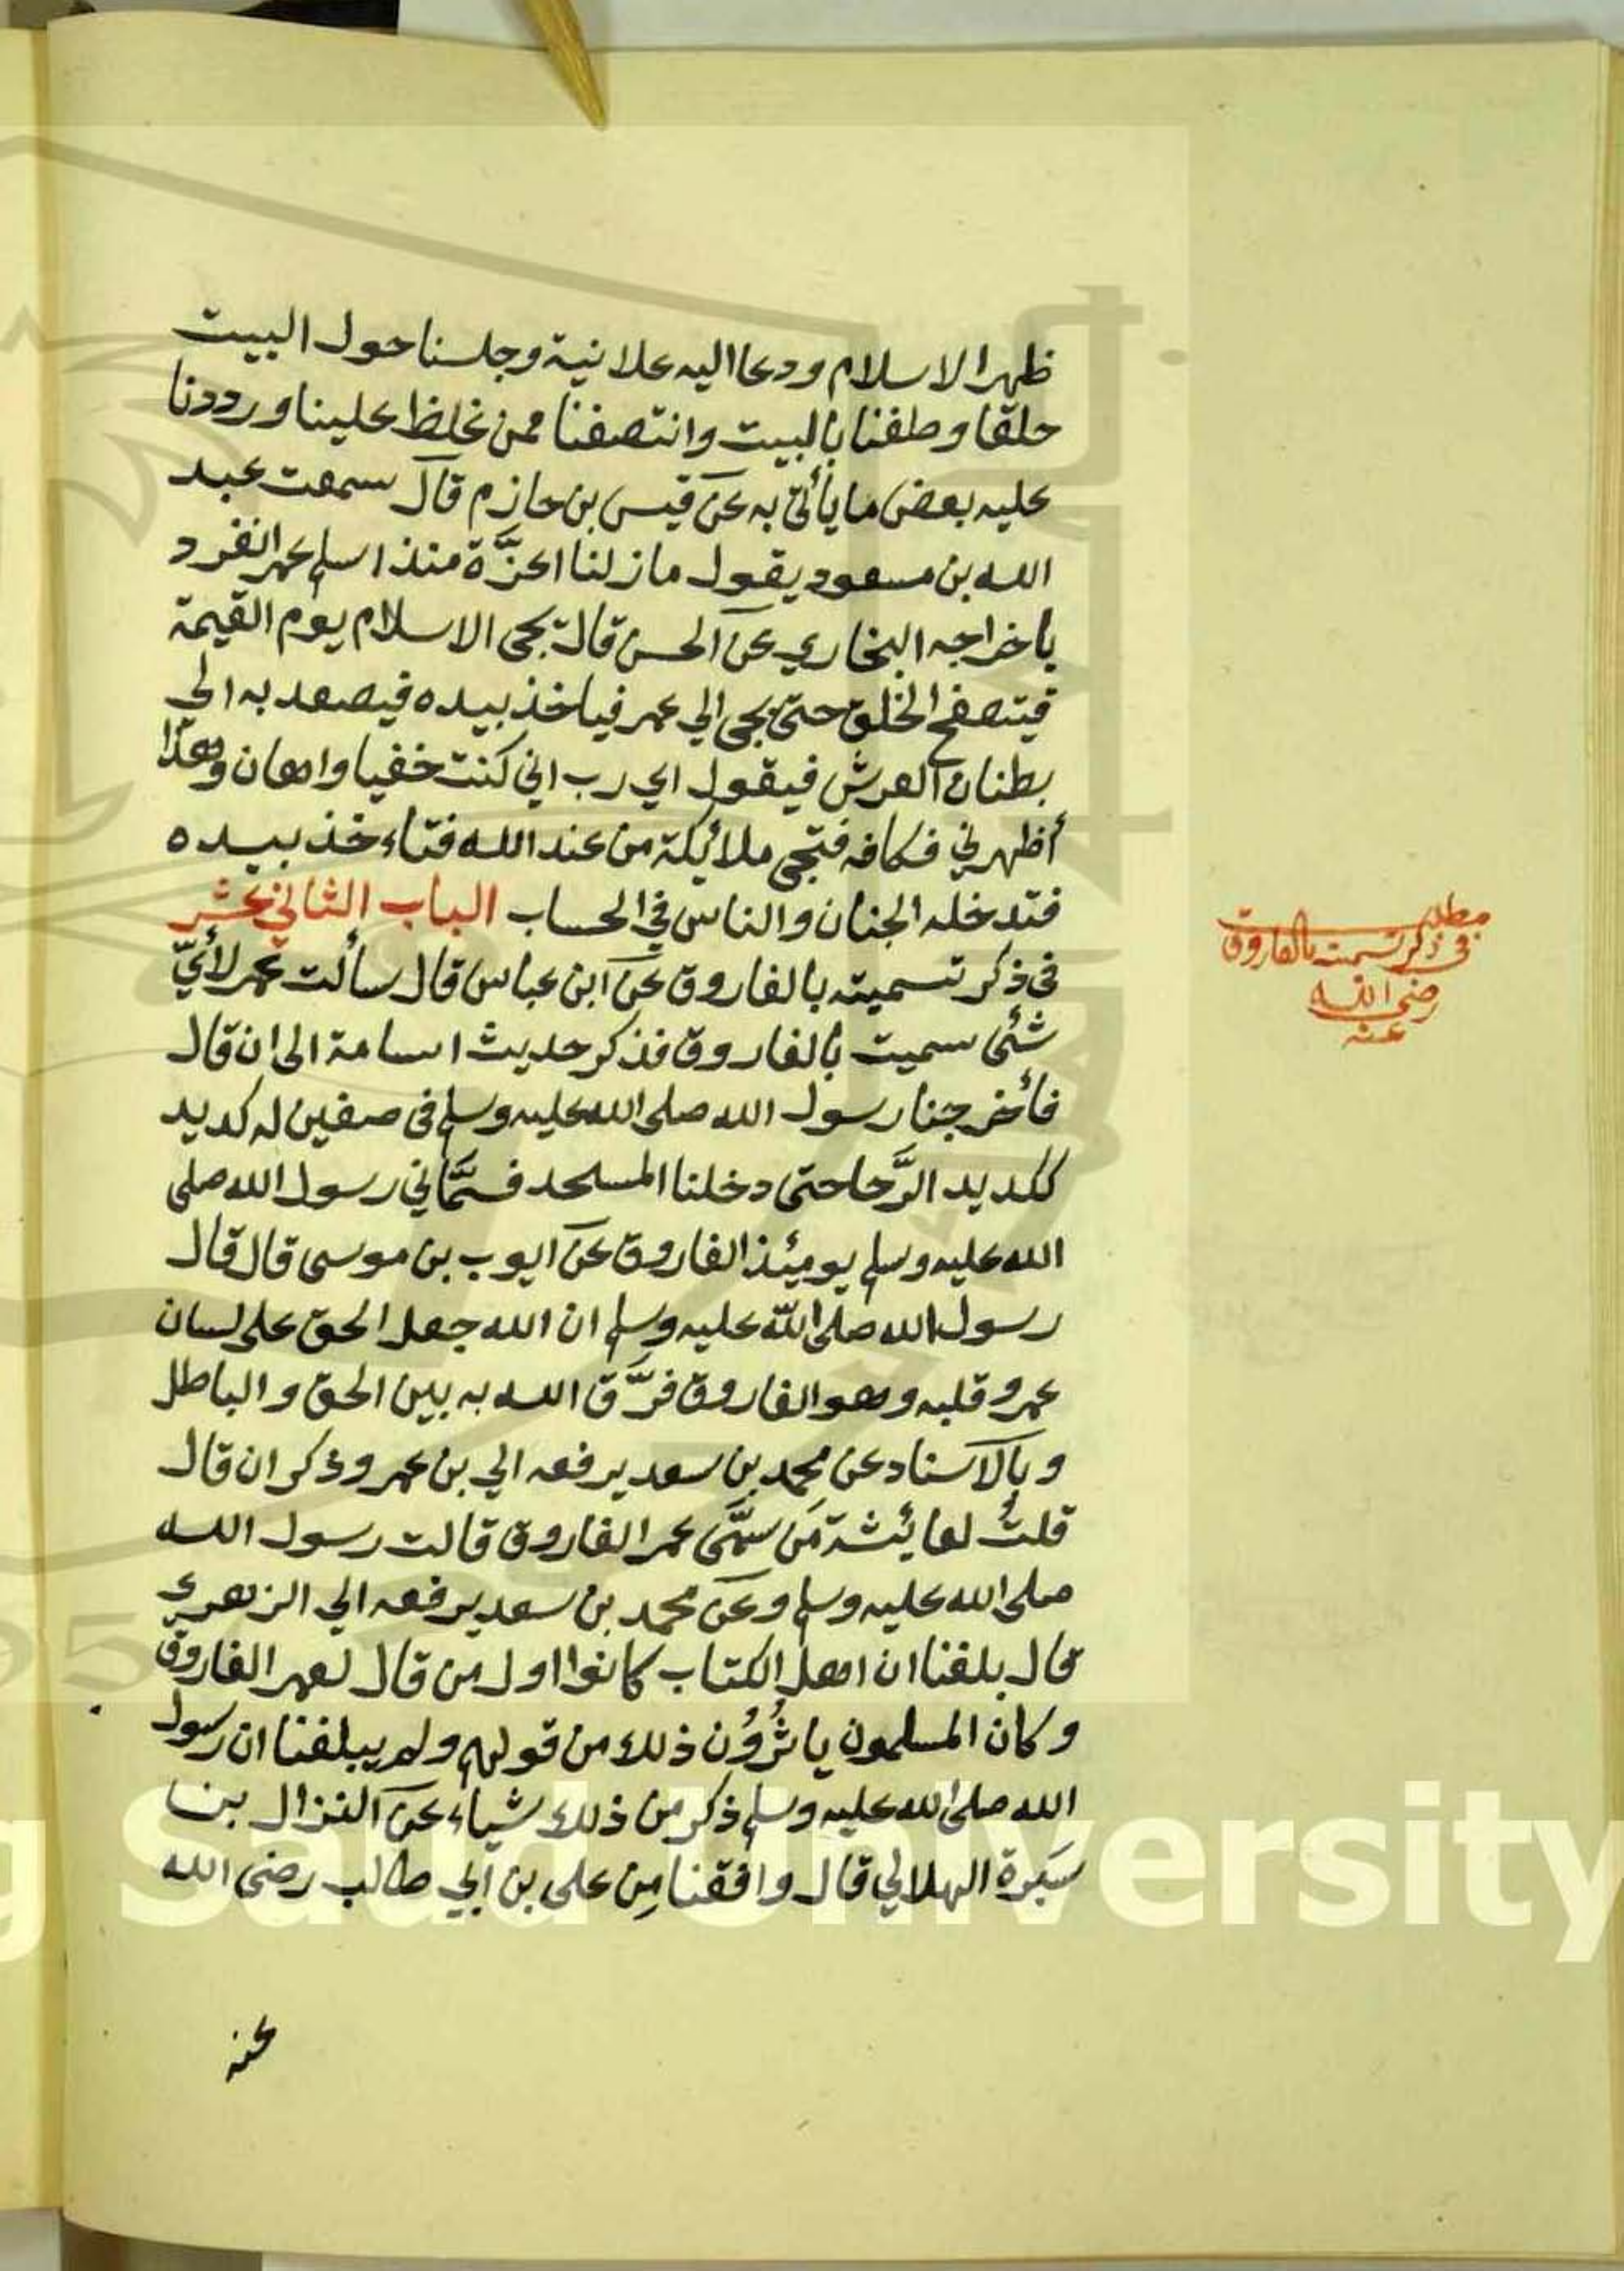 ظهر الاسلام ودعا اليه علانية وجلسنا حول البيت
حلقا وطفنا بالبيت وانتصفنا ممن غلظ علينا ورددنا
عليه بعض ما يأتي به عن قيس بن حازم قال سمعت عبد
الله بن مسعود يقول ما زلنا اعزَّة منذ اسلم عمر انفرد
باخراجه البخاري عن الحسن قال يجى الاسلام يوم القيمة
فيتصفح الخلق حتى يجى الي عمر فياخذ بيده فيصعد به الى
بطنان العرش فيقول اي رب اني كنت خفيا واهان وهذا
أظهرني فكافه فتجى ملائكة من عند الله فتاءخذ بيده
فتدخله الجنان والناس في الحساب الباب الثاني عشر
فى ذكر تسميته بالفاروق عن ابن عباس قال سألت عمر لأيّ
شئى سميت بالفاروق فذكر حديث اسامة الى ان قال
فأخرجنا رسول الله صلى الله عليه وسلم فى صفين له كديد
ككديد الرَّحا حتى دخلنا المسجد فسمَّاني رسول الله صلى
الله عليه وسلم يومئذ الفاروق عن ايوب بن موسى قال قال
رسول الله صلى الله عليه وسلم ان الله جعل الحق على لسان
عمر وقلبه وهو الفاروق فرَّق الله به بين الحق والباطل
وبالاسناد عن محمد بن سعد يرفعه الي بن عمر وذكر ان قال
قلتُ لعائشة مَن سمَّى عمر الفاروق قالت رسول الله
صلى الله عليه وسلم وعن محمد بن سعد يرفعه الي الزهري
قال بلغنا ان اهل الكتاب كانوا اول من قال لعمر الفاروق
وكان المسلمون ياثُرُوُن ذلك من قولهم ولم يبلغنا ان رسول
الله صلى الله عليه وسلم ذكر من ذلك شياء عن النزال بن
سَبرة الهلالي قال وافقنا مِن على بن ابي طالب رضى الله
عنه
مطلب
فى ذكر تسميته بالفاروق
رضى الله
عنه
King Saud University